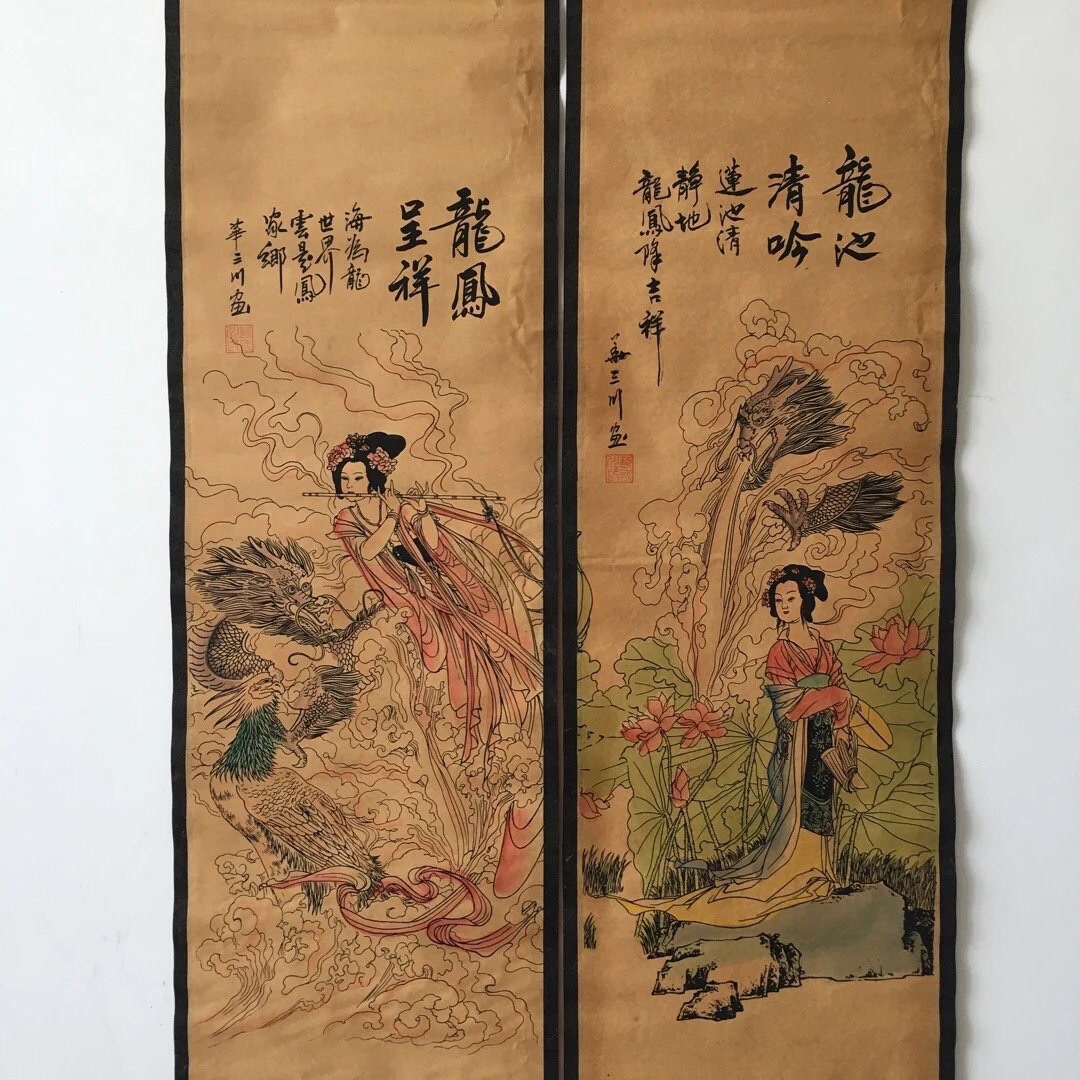 龍池
清吟
蓮池清
静地
龍鳳降吉祥
華三川画
龍鳳
呈祥
海為龍
世界
雲是鳳
家鄉
華三川画